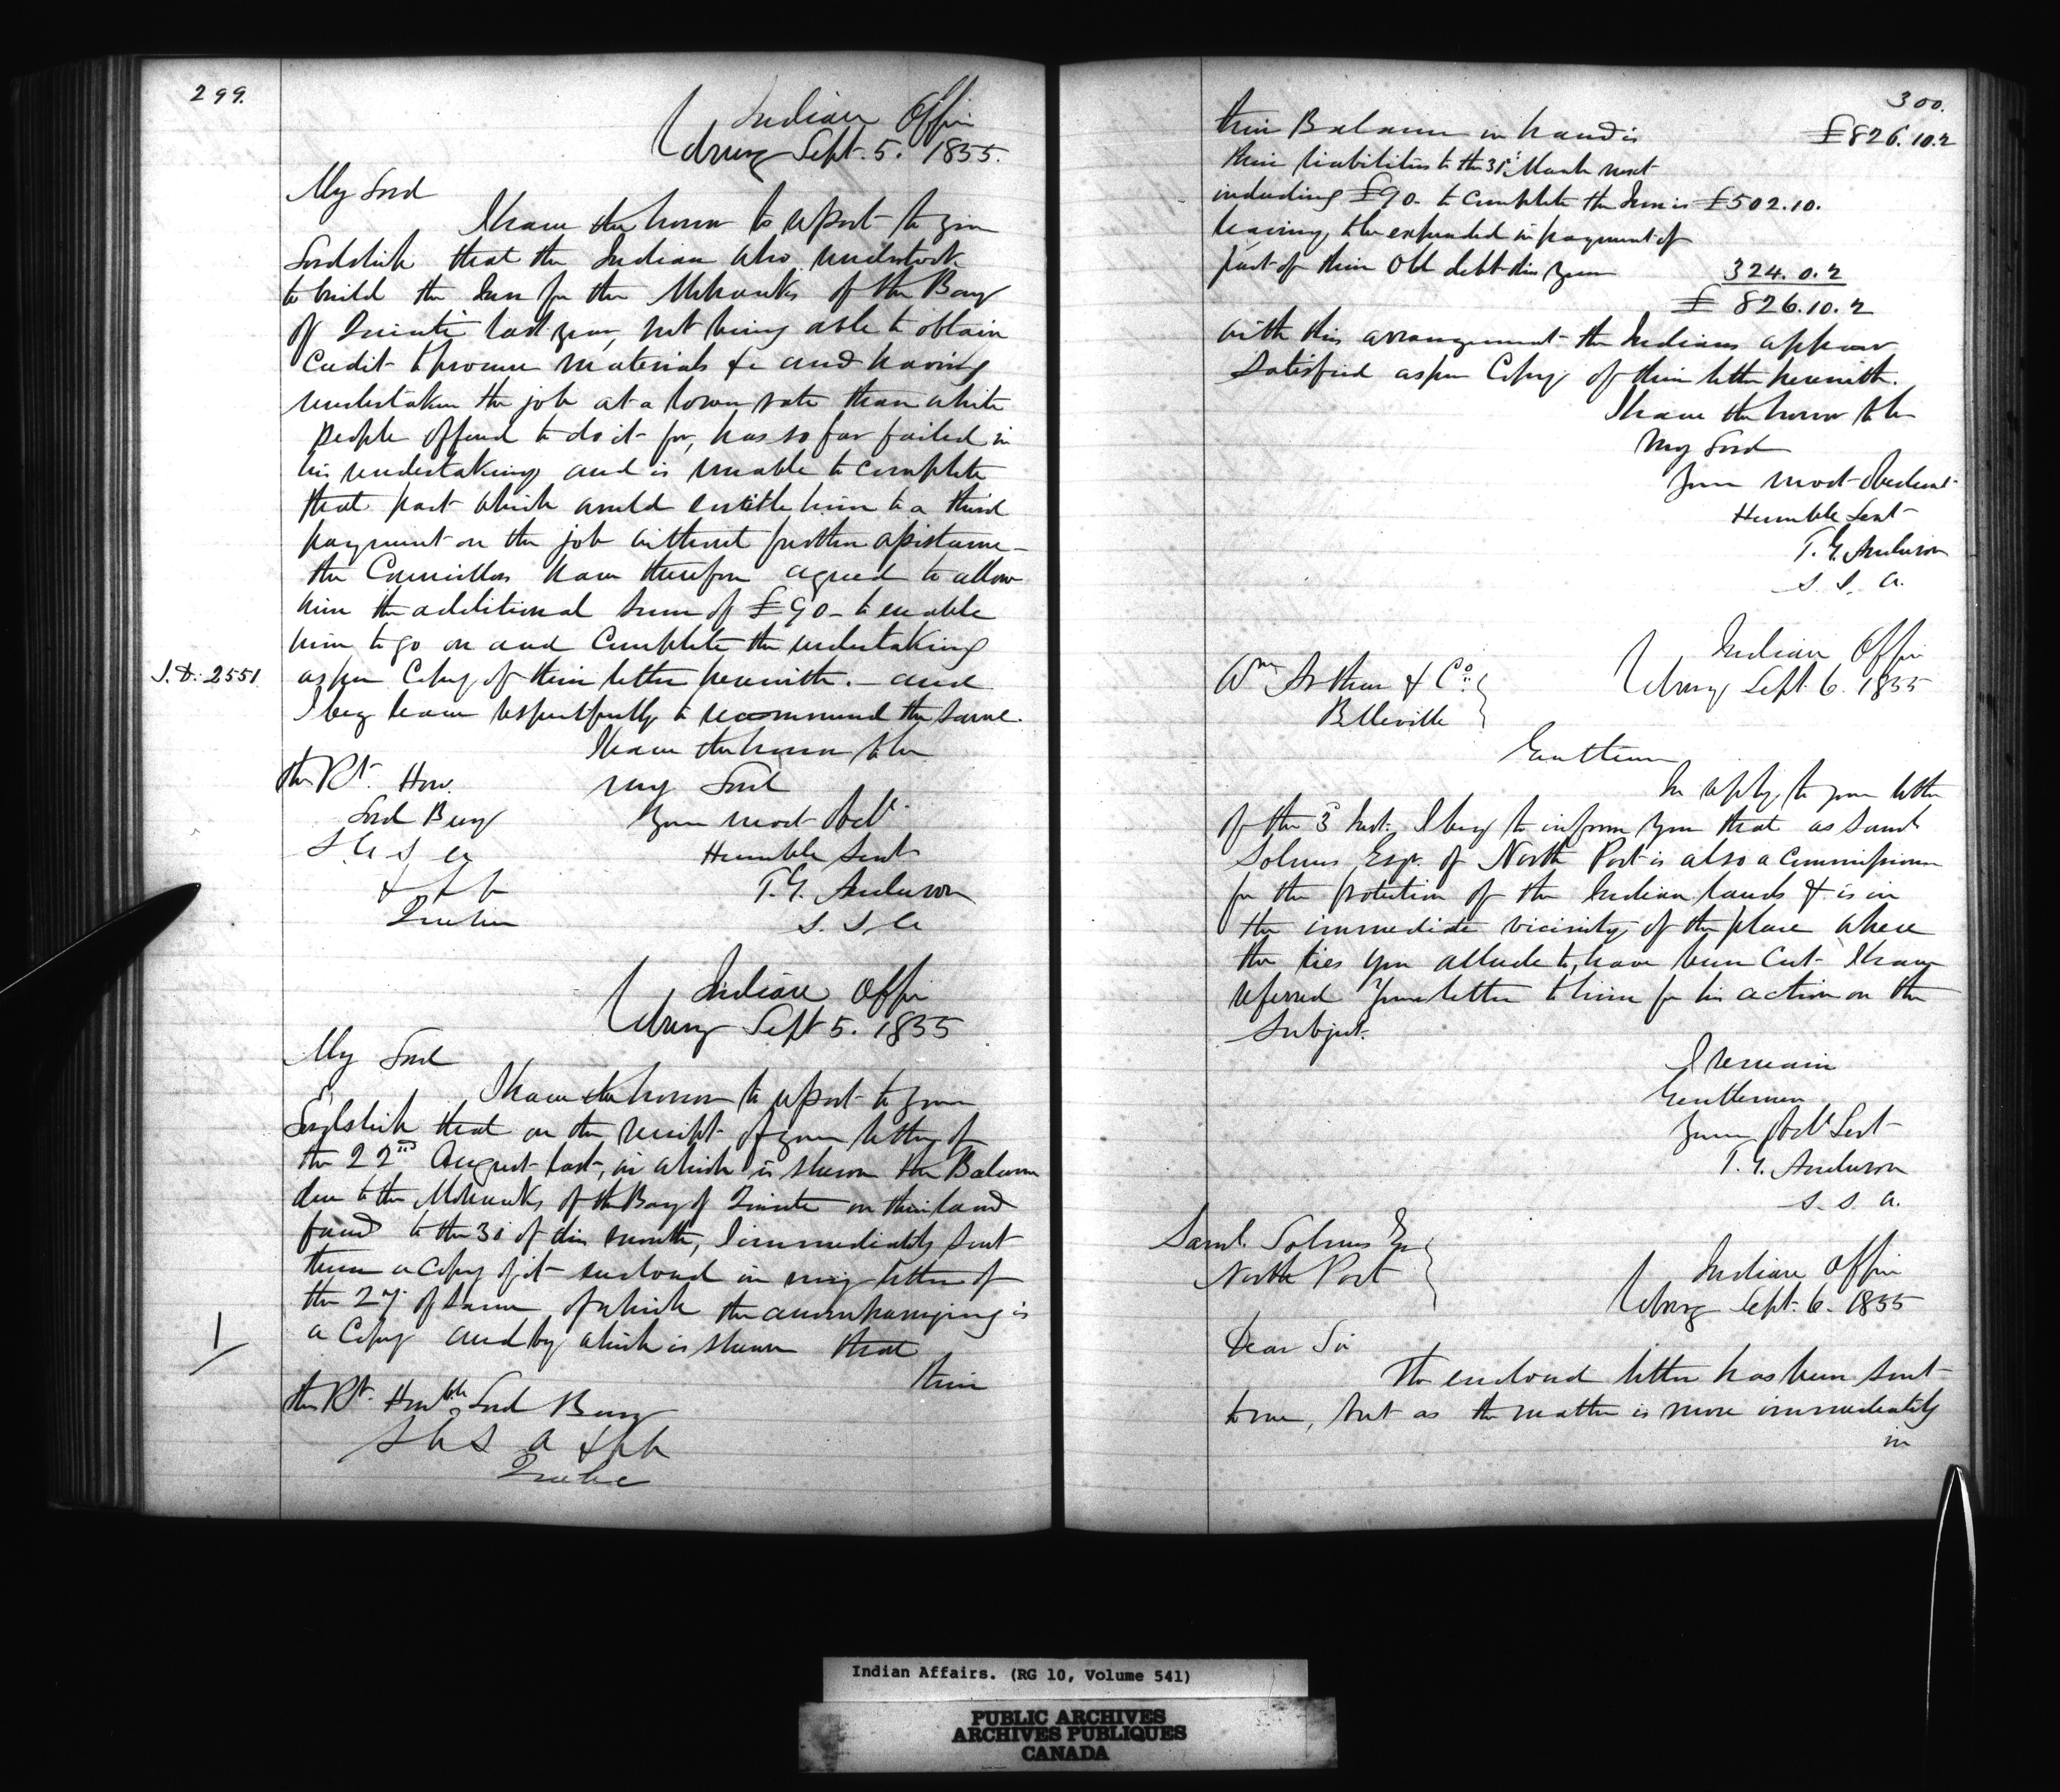 299.
Indian Office
Cobourg Sept. 5. 1855.
My Lord
I have the honor to report to your
Lordship that the Indian who undertook
to build the Inn for the Mohawks of the Bay
of Quinté last year, not being able to obtain
Credit to procure materials &c and having
undertaken the job at a lower rate than white
people offered to do it for, has so far failed in
his undertaking and is unable to complete
that part which would entitle him to a third
payment on the job without further assistance –
the Councillors have therefore agreed to allow
him the additional sum of £90 – to enable
him to go on and Complete the undertaking
J.D. 2551
as per Copy of their letter herewith. – and
I beg leave respectfully to recommend the same.
I have the honor to be
My Lord
Your most Obdt
Humble Servt
T. G. Anderson
S. I. A
The Rt. Hon.
Lord Bury
S G S I A
& & &
Quebec
Indian Office
Cobourg Sept 5. 1855
My Lord
I have the honor to report to your
Lordship that on the receipt of your letter of
the 22nd August last, in which is shewn the Balance
due to the Mohawks of the Bay of Quinte on their land
fund to the 31 of this month, I immediately sent
them a Copy of it enclosed in my letter of
the 27. of same, of which the accompanying is
1/
a Copy and by which is shewn that
their
The Rt. Honble Lord Bury
S G S I A & & &
Quebec
300.
their Balance in hand is £826.10.2
their liabilities to the 31st March next
including £90. to complete the Inn is £502.10.
leaving to be expended in payment of
part of their Old debt this year 324. 0. 2
£ 826.10.2
with this arrangement the Indians appear
Satisfied as per Copy of their letter herewith.
I have the honor to be
My Lord
Your most Obedient
Humble Servt
T. G. Anderson
S. I. A.
Indian Office
Cobourg Sept. 6. 1855
Wm Arthur & Co.
Belleville
Gentlemen
In reply to your letter
of the 3d Inst. I beg to inform you that as Saml
Solmes Esqr. of North Port is also a Commissioner
for the protection of the Indian lands & is in
the immediate vicinity of the place where
the ties you allude to, have been Cut I have
referred your letter to him for his action on the
Subject.
I remain
Gentlemen
Your Obdt Servt
T. G. Anderson
S. I. A.
Saml. Solmes Esqr
North Port
Indian Office
Cobourg Sept. 6. 1855
Dear Sir
The enclosed letter has been sent
to me, but as the matter is more immediately
in
Indian Affairs. (RG 10, Volume 541)
PUBLIC ARCHIVES
ARCHIVES PUBLIQUES
CANADA